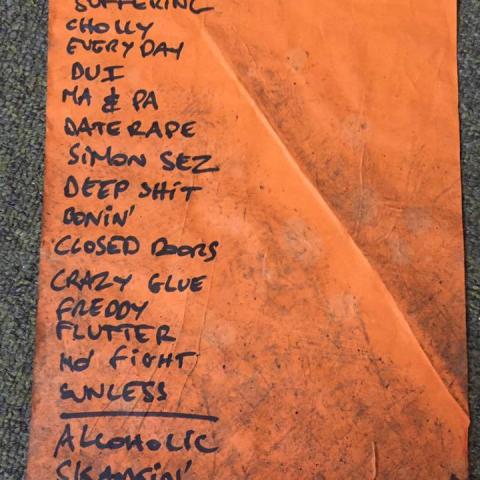 SUFFERING
CHOLLY
EVERYDAY
DUI
MA & PA
DATE RAPE
SIMON SEZ
DEEP SHIT
BONIN'
CLOSED DOORS
CRAZY GLUE
FREDDY
FLUTTER
NO FIGHT
SUNLESS
ALCOHOLIC
SKANKIN'